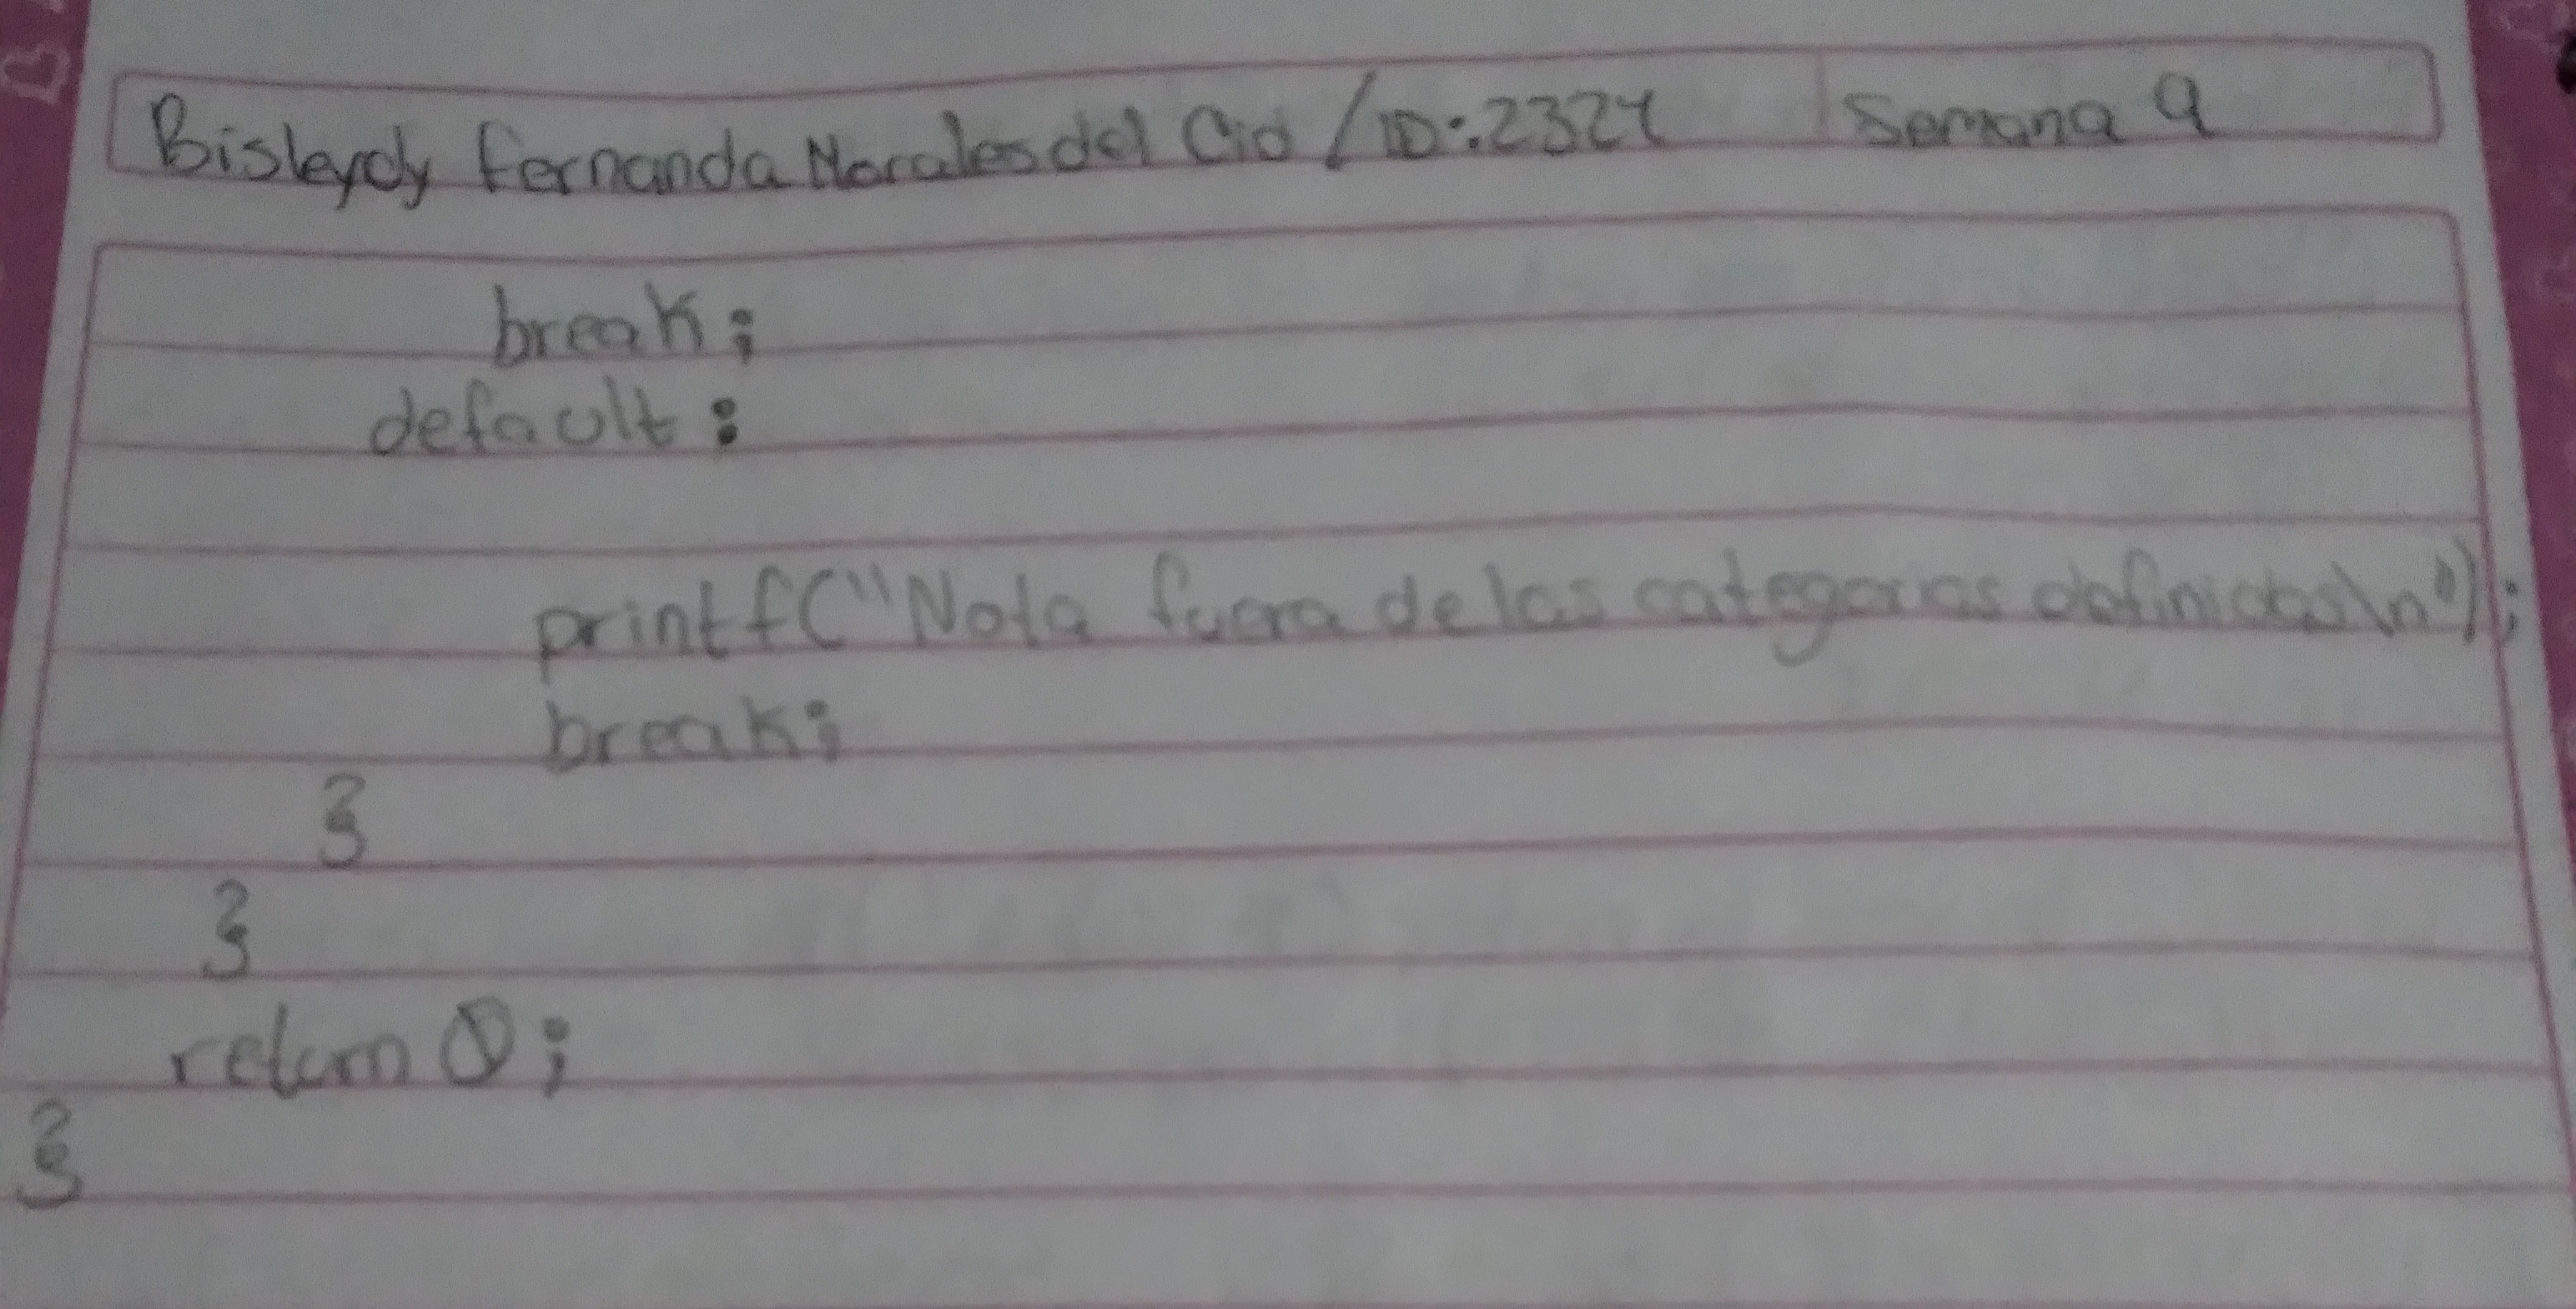 Bisleydy Fernanda Morales del Cid / ID: 2324 Semana 9
break;
default:
printf("Nota fuera de las categorias definidas\n");
break;
}
}
return 0;
}